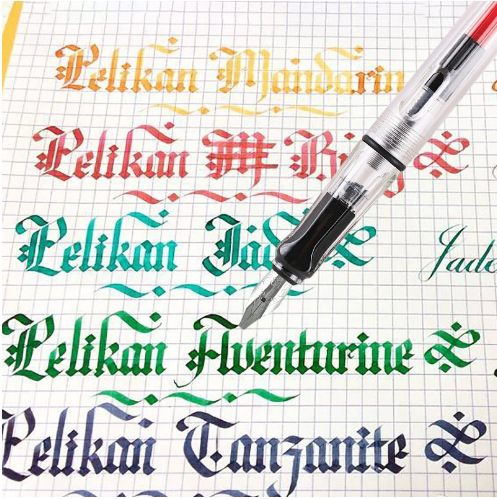 Pelikan Mandarin
Pelikan
Pelikan Jade
Jade
Pelikan Aventurine
Pelikan Tanzanite